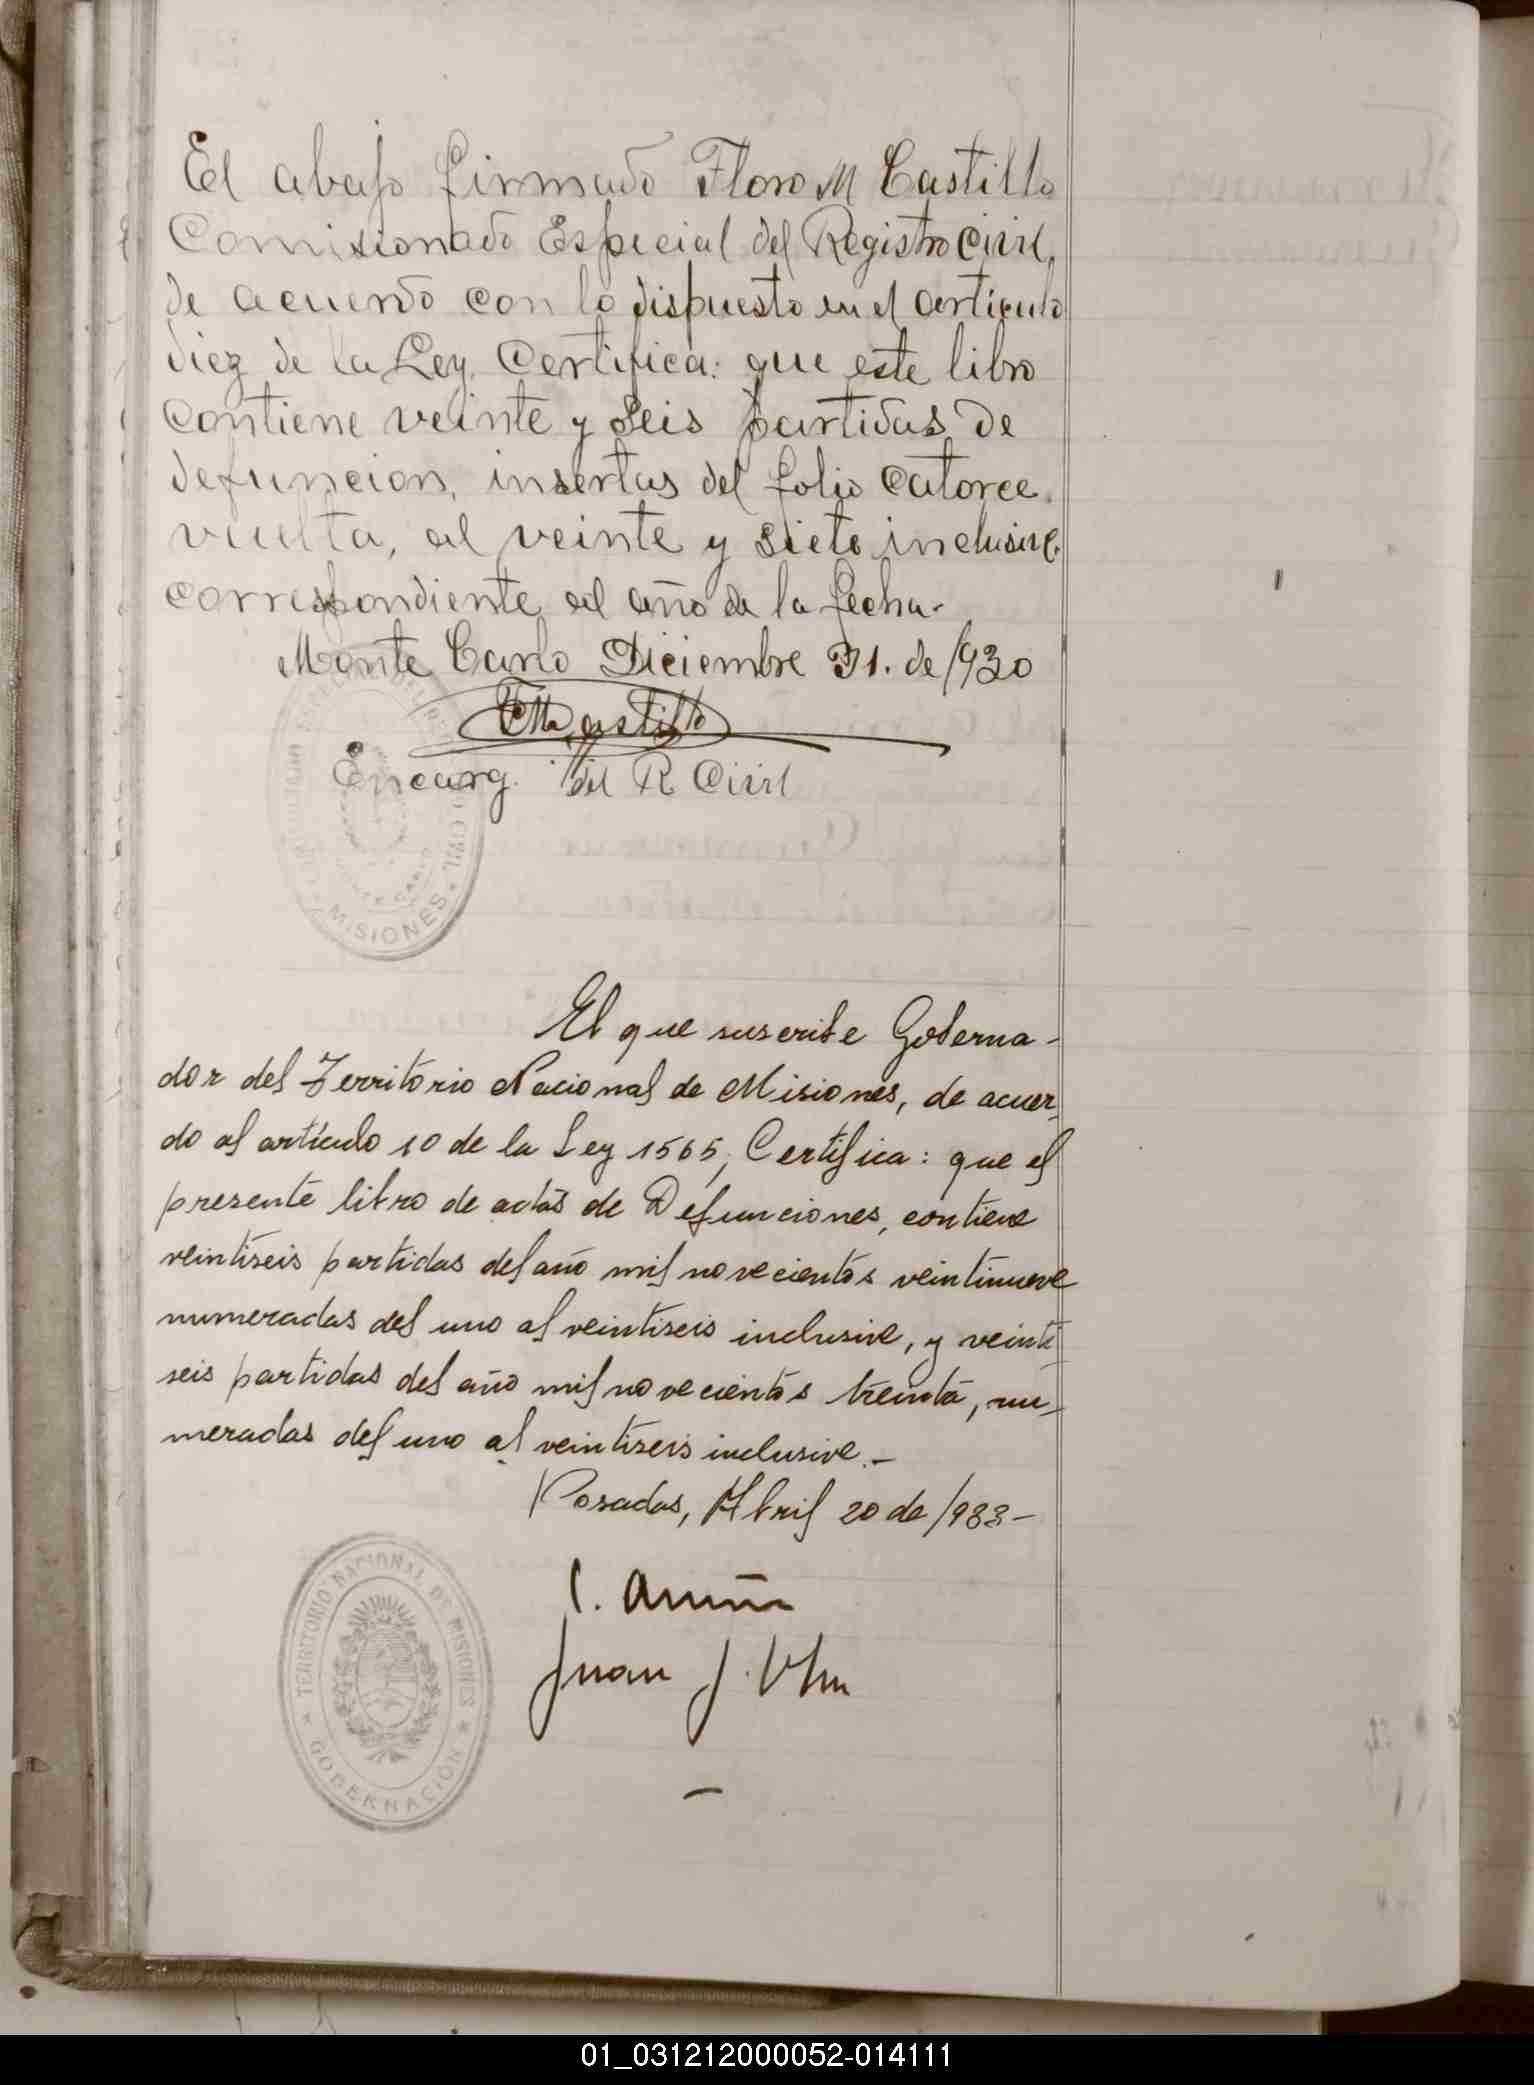 El abajo firmado Floro M Castillo
Comisionado Especial del Registro Civil,
de acuerdo con lo dispuesto en el articulo
diez de la Ley, Certifica: que este libro
contiene veinte y seis partidas de
defuncion, insertas del folio catorce
vuelta, al veinte y siete inclusive.
correspondiente al año de la fecha.
Monte Carlo Diciembre 31. de /930
Castillo
Encarg. del R Civil
CIVIL
MISIONES
MONTE CARLO
El que suscribe Goberna-
dor del Territorio Nacional de Misiones, de acuer-
do al artículo 10 de la Ley 1565, Certifica: que el
presente libro de actas de Defunciones, contiene
veintiseis partidas del año mil novecientos veintinueve
numeradas del uno al veintiseis inclusive, y veinti-
seis partidas del año mil novecientos treinta, nu-
meradas del uno al veintiseis inclusive.-
Posadas, Abril 20 de /933-
TERRITORIO NACIONAL DE MISIONES
GOBERNACIÓN
Juan J.
01_031212000052-014111